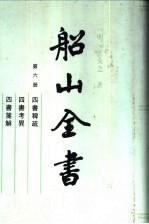 船山全書
第六冊
四書稗疏
四書考異
四書箋解